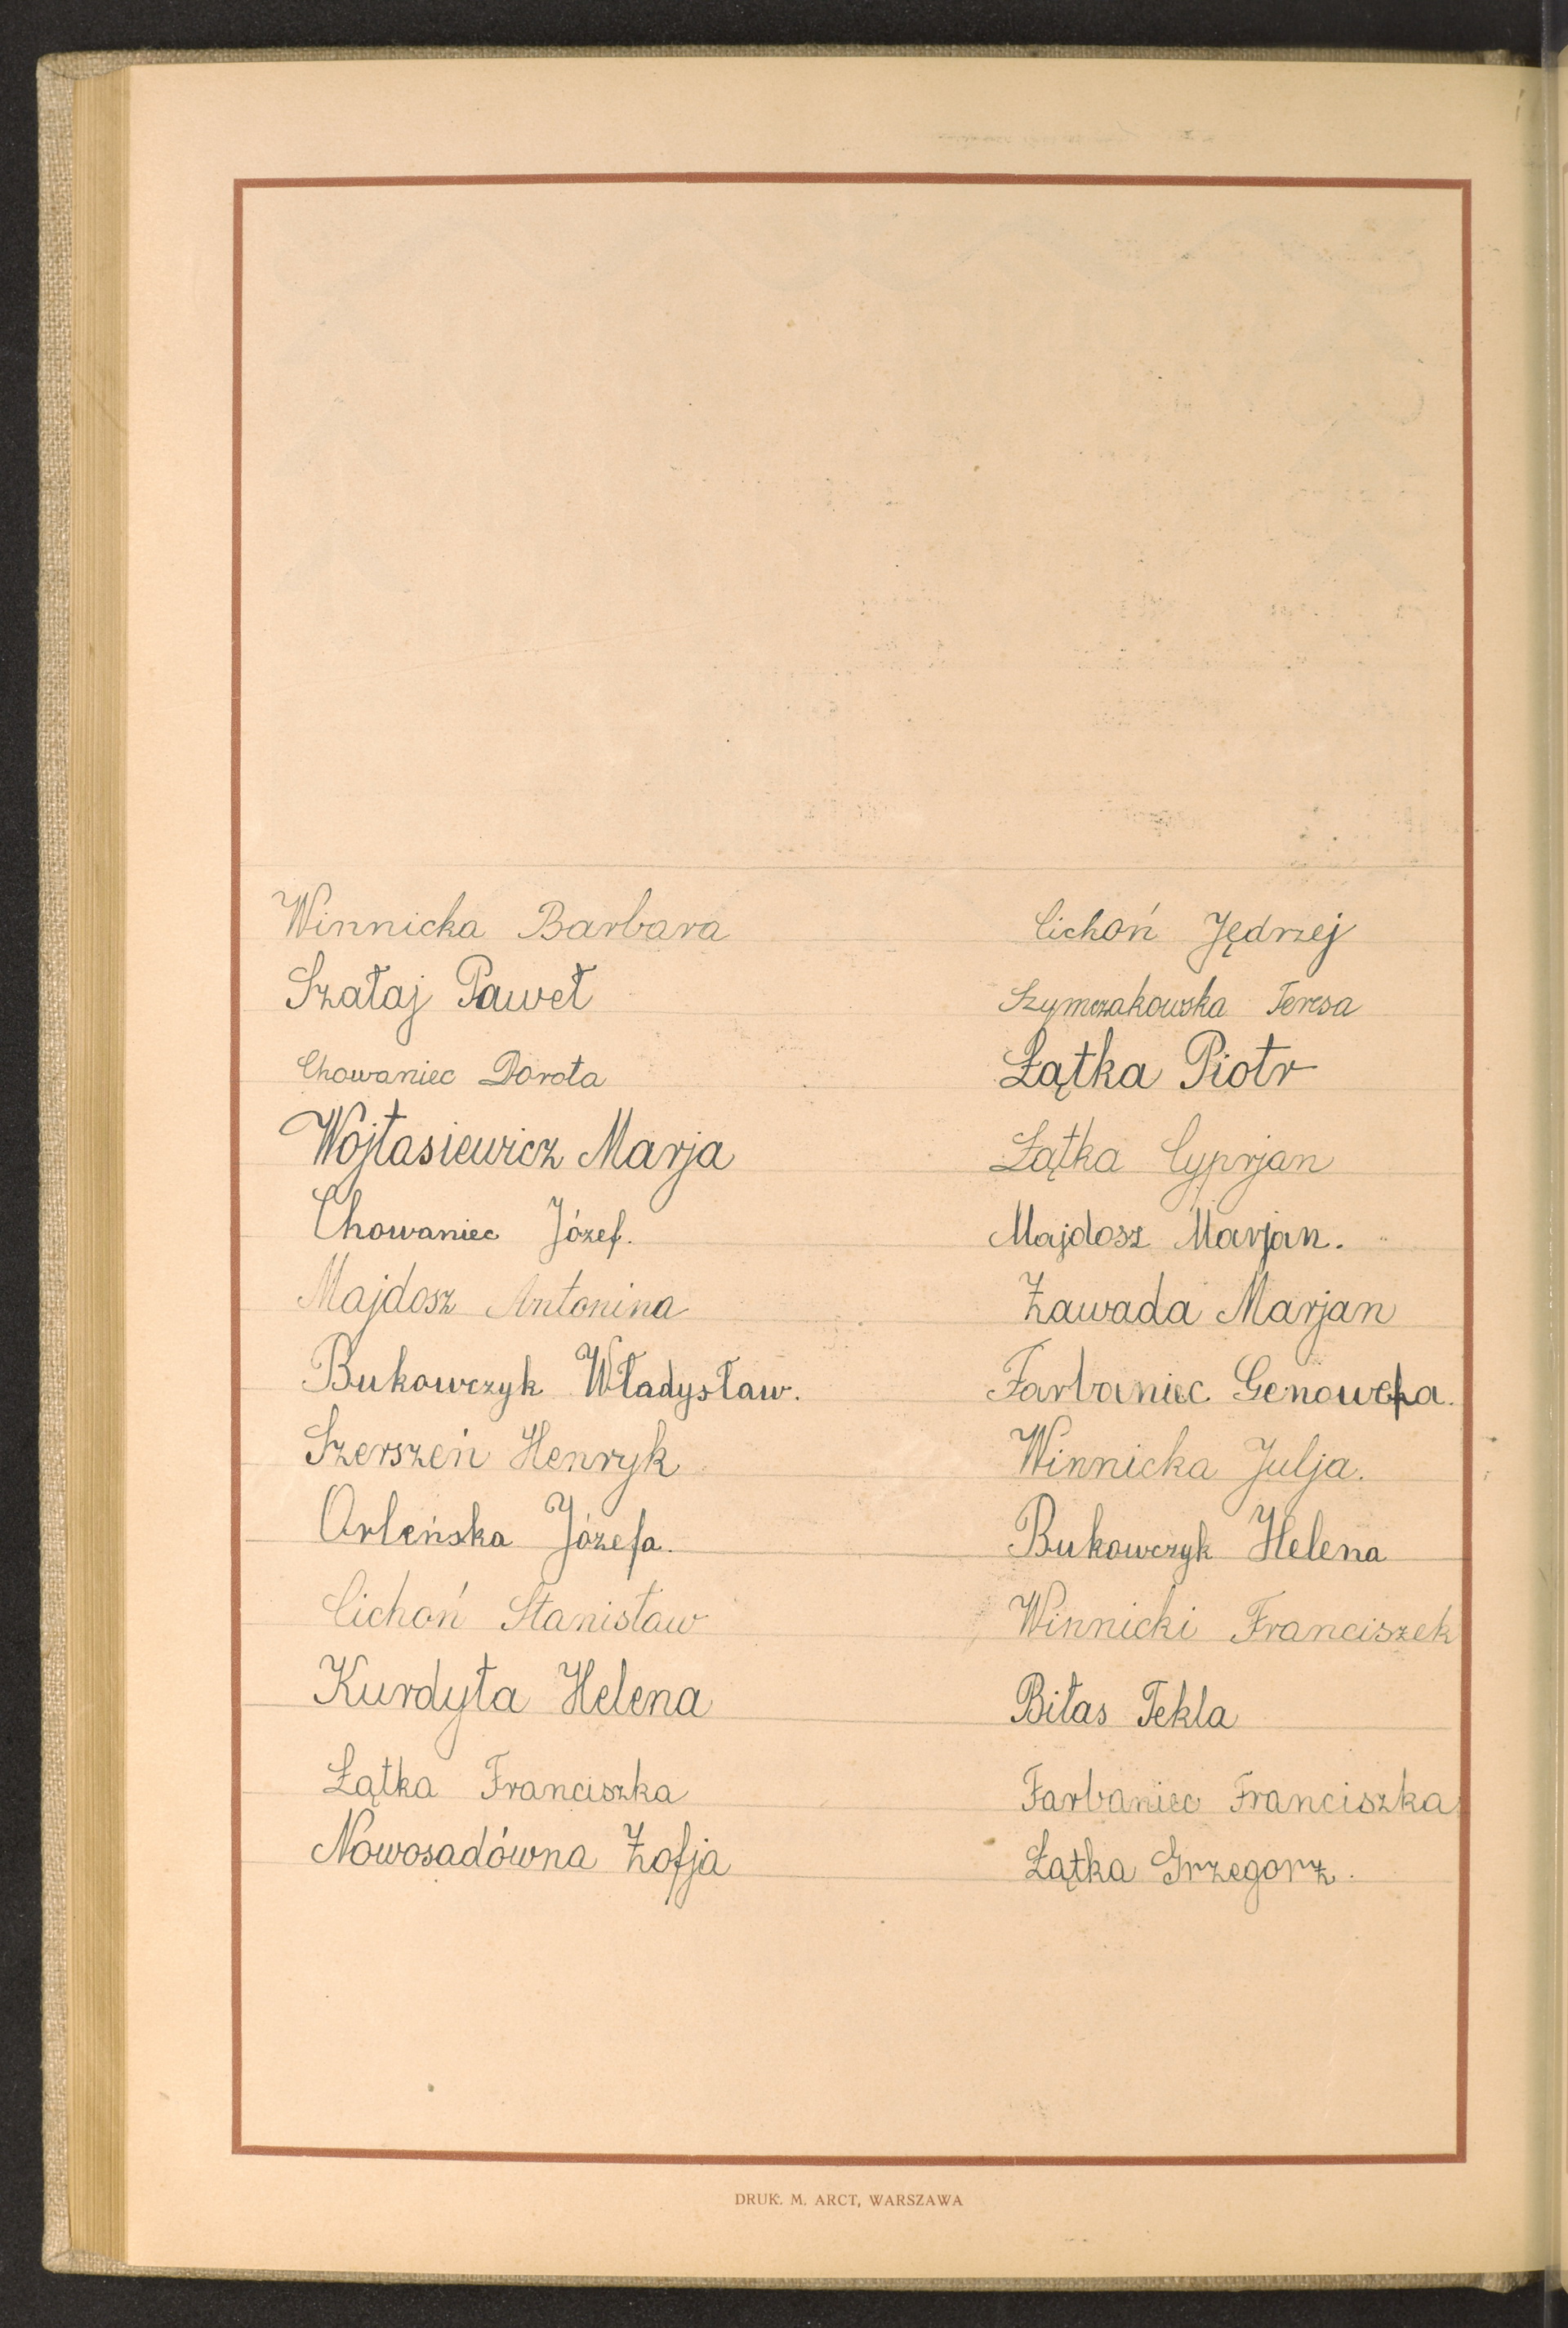 Winnicka Barbara
Szałaj Paweł
Chowaniec Dorota
Wójtasiewicz Marja
Chowaniec Józef.
Majdosz Antonina
Bukowczyk Władysław.
Szerszeń Henryk
Orleńska Józefa.
Cichoń Stanisław
Kurdyła Helena
Łątka Franciszka
Nowosadówna Zofja
Cichoń Jędrzej
Szymczakowska Teresa
Łątka Piotr
Łątka Cyprjan
Majdosz Marjan.
Zawada Marjan
Farbaniec Genowefa.
Winnicka Julja.
Bukowczyk Helena
Winnicki Franciszek
Biłas Tekla
Farbaniec Franciszka
Łątka Grzegorz.
DRUK. M. ARCT, WARSZAWA